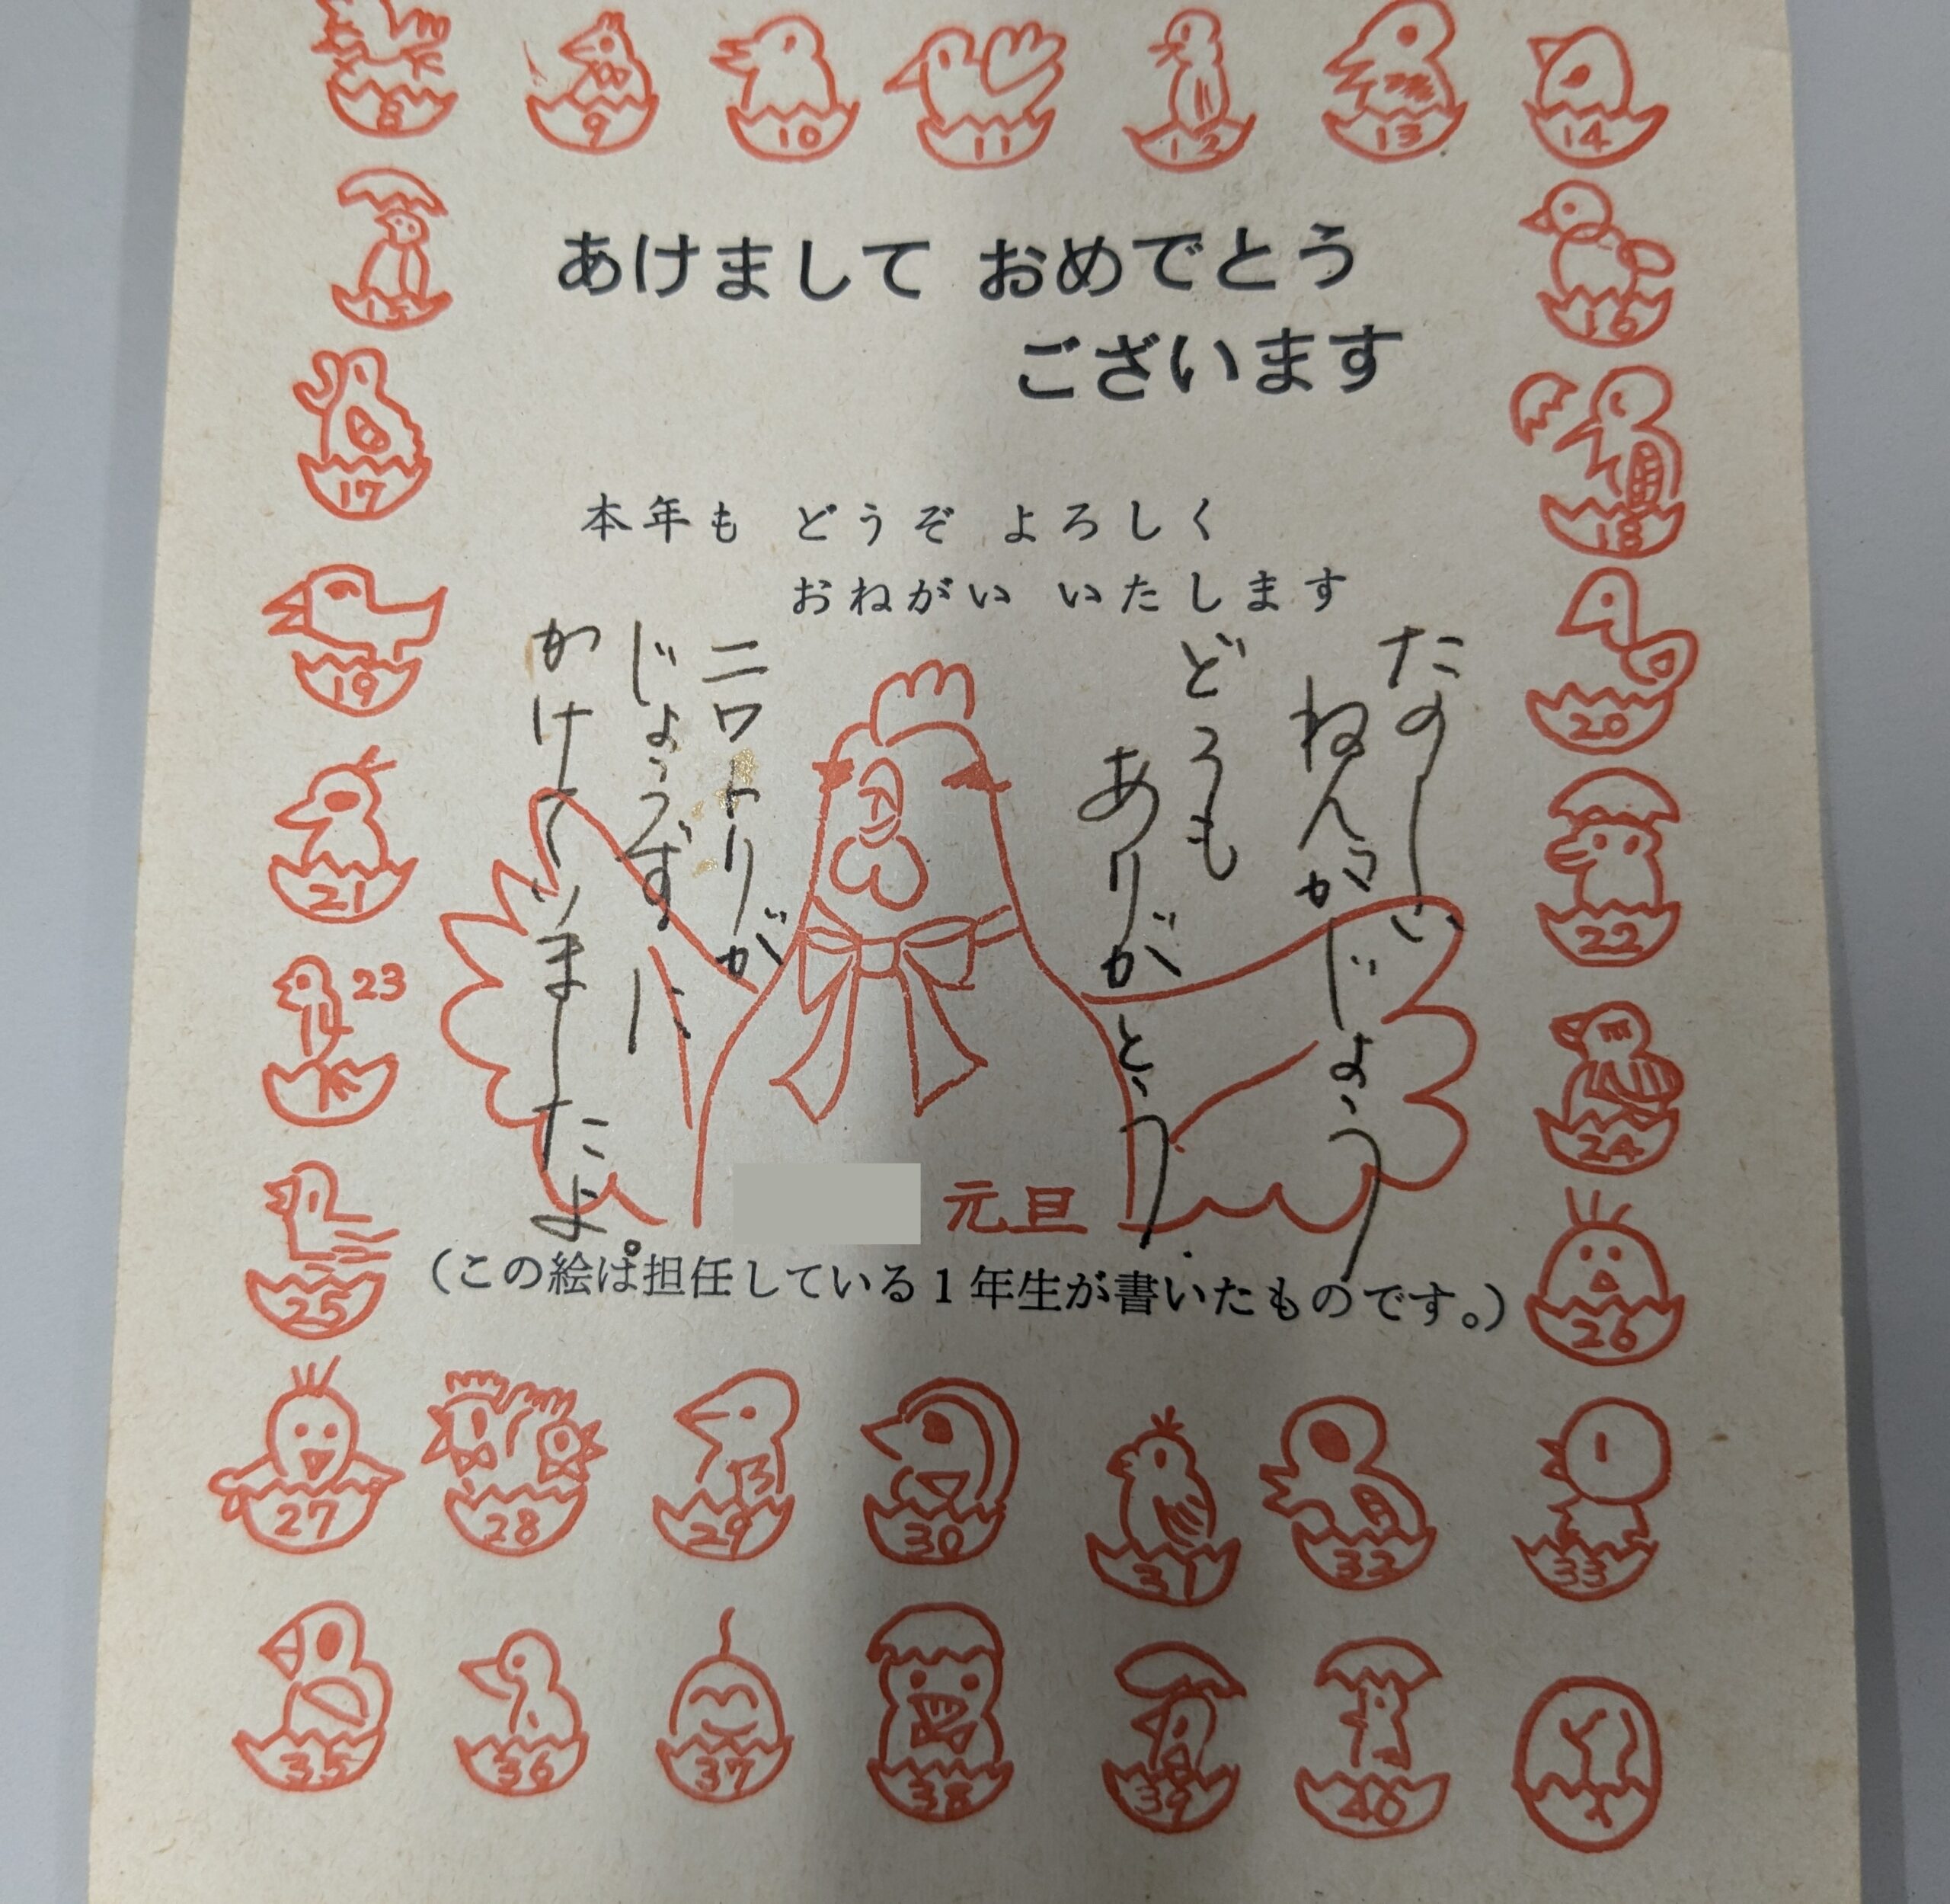 8
9
10
11
12
13
14
あけまして おめでとう
ございます
15
16
17
18
本年も どうぞ よろしく
おねがい いたします
19
20
たのしい
ねんがじょう
どうも
ありがとう.
ニワトリが
じょうずに
かけていましたよ。
21
22
23
24
元旦
(この絵は担任している1年生が書いたものです。)
25
26
27
28
29
30
31
32
33
35
36
37
38
39
40